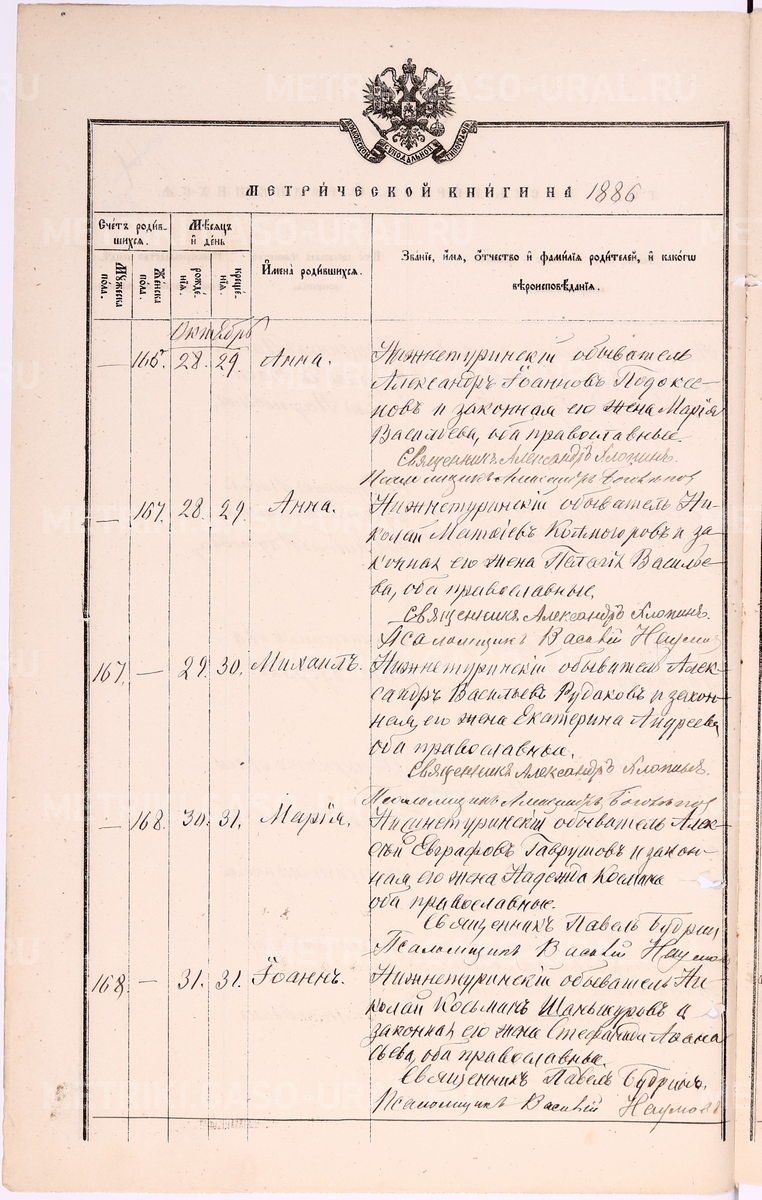 МОСКОВСКОЙ СѴНОДАЛЬНОЙ ТИПОГРАФІИ
МЕТРИ́ЧЕСКОЙ КНИ́ГИ НА 1886
Сче́тъ роди́вшихся.
Мѣ́сяцъ и҆ де́нь
И҆мена̀ роди́вшихся.
Зва́нїе, и҆́мя, ѻ҆́тчество и҆ фами́лїя роди́телей, и҆ како́гѡ вѣроисповѣ́данїя.
Мꙋ́жеска по́ла.
Же́нска по́ла.
рожде́нїя.
креще́нїя.
Октябрь
— 166. 28. 29. Анна. Нижнетуринскій обыватель
Александръ Іоанновъ Подоксе-
новъ и законная его жена Марія
Васильева, оба православные.
Священникъ Александръ Хлопинъ.
Псаломщикъ Александръ
— 167. 28. 29. Анна. Нижнетуринскій обыватель Ни-
колай Матѳіевъ и за-
конная его жена Пелагія Василье-
ва, оба православные.
Священникъ Александръ Хлопинъ.
Псаломщикъ Василій Наумовъ
167. — 29. 30. Михаилъ. Нижнетуринскій обыватель Алек-
сандръ Васильевъ Рудаковъ и закон-
ная его жена Екатерина Андреева
оба православные.
Священникъ Александръ Хлопинъ.
Псаломщикъ Александръ
— 168. 30. 31. Марія. Нижнетуринскій обыватель Алек-
сѣй Евграфовъ Гаврушовъ и закон-
ная его жена Надежда Космина
оба православные.
Священникъ Павелъ Будрин
Псаломщикъ Василій Наумовъ
168. — 31. 31. Іоаннъ. Нижнетуринскій обыватель Ни-
колай Косьминъ Шаньшуровъ и
законная его жена Стефанида Аѳана
сьева, оба православные.
Священникъ Павелъ Будринъ.
Псаломщикъ Василій Наумовъ
METRIKI.GASO-URAL.RU